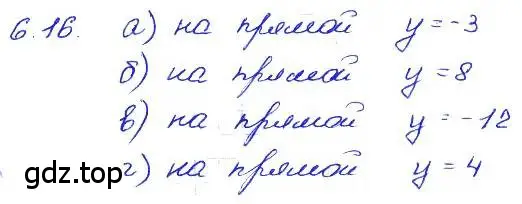 6.16. а) на прямой y = -3
б) на прямой y = 8
в) на прямой y = -12
г) на прямой y = 4
gdz.top